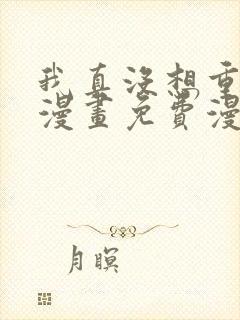 我真没想重
漫畫免費漫
月瞑